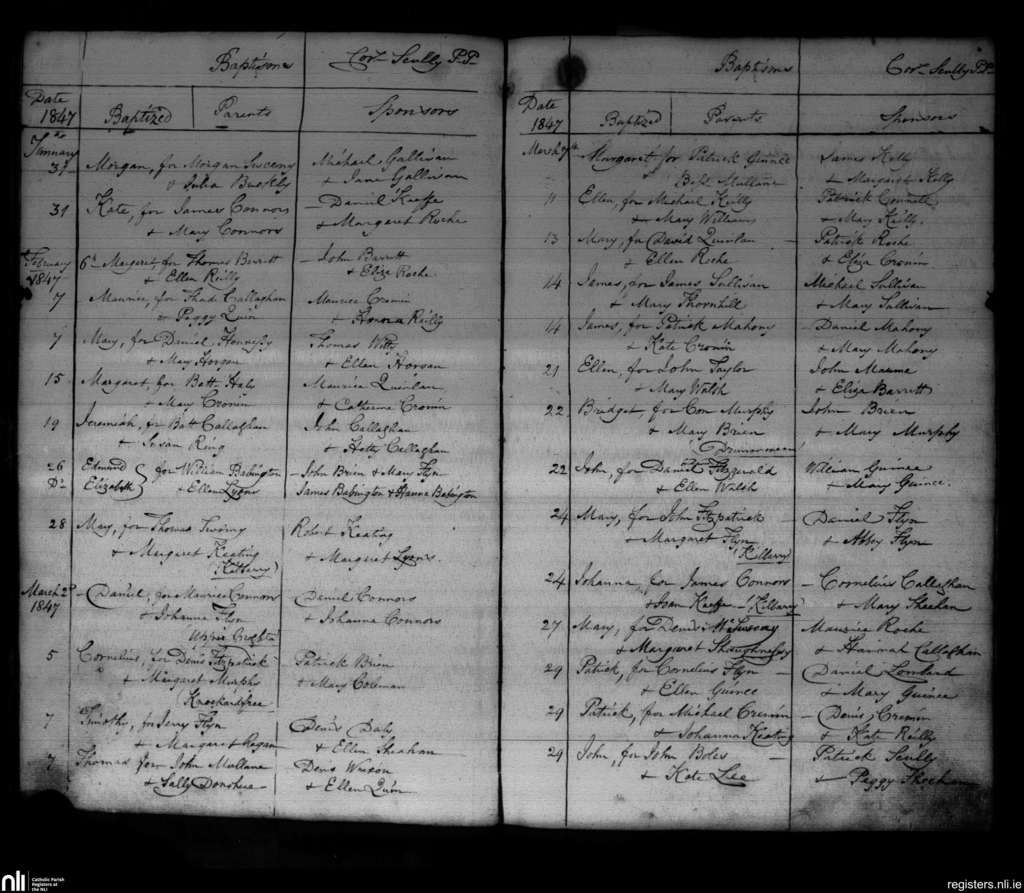 Baptisms Corns Scully P.P.
Date
1847 Baptized Parents Sponsors
January
31 Morgan, for Morgan Sweeny Michael Gallivan
& Julia Buckly & Jane Gallivan
31 Kate, for James Connors Daniel Keeffe
& Mary Connors & Margaret Roche
February 6th Margaret, for Thomas Barrett John Barrett
1847 & Ellen Reilly & Eliza Roche
7 Maurice, for Thad Callaghan Maurice Cronin
& Peggy Quin & Honora Reilly
7 Mary, for Daniel Hennessy Thomas
& Mary Horgan & Ellen Horgan
15 Margaret, for Batt Maurice Quinlan
& Mary Cronin & Catherine Cronin
19 Jeremiah, for Batt Callaghan John Callaghan
& Susan Ring & Hetty Callaghan
26 Edmund for William Babington John Brien & Mary Flyn
Do Elizabeth & Ellen Lyons James Babington & Hanna Babington
28 Mary, for Thomas Robert Keating
& Margaret Keating & Margaret Lyons.
March 2d Daniel, for Maurice Connors Daniel Connors
1847 & Johanna Flyn & Johanna Connors
5 Cornelius, for Denis Fitzpatrick Patrick Brien
& Margaret Murphy & Mary Coleman
7 Timothy, for Jerry Flyn Denis Daly
& Margaret Regan & Ellen Sheahan
7 Thomas for John Mullane Denis
& Sally Donohue & Ellen Quin
Baptisms Corns Scully P.P.
Date
1847 Baptized Parents Sponsors
March 7th Margaret for Patrick Guinee James Kelly
& Mullane & Margaret Kelly
11 Ellen, for Michael Reilly Patrick
& Mary Williams & Mary Reilly.
13 Mary, for David Quinlan Patrick Roche
& Ellen Roche & Eliza Cronin
14 James, for James Sullivan Michael Sullivan
& Mary Thornhill & Mary Sullivan
14 James, for Patrick Mahony Daniel Mahony
& Kate Cronin & Mary Mahony
21 Ellen, for John Taylor John
& Mary Walsh & Eliza Barrett
22 Bridget, for Con Murphy John Brien
& Mary Brien & Mary Murphy
22 John, for Daniel Fitzgerald William Guinee
& Ellen Walsh & Mary Guinee.
24 Mary, for John Fitzpatrick Daniel Flyn
& Margaret Flyn & Abbey Flyn
(Killavy)
24 Johanna, for James Connors Cornelius Callaghan
& Joan Keeffe (Killavy) & Mary Sheehan
27 Mary, for Denis McSweeny Maurice Roche
& Margaret Shaughnessy & Hannah Callaghan
29 Patrick, for Cornelius Flyn Daniel Lombard
& Ellen Guinee & Mary Guinee
29 Patrick, for Michael Cremin Denis Cremin
& Johanna Keating & Kate Reilly
29 John, for John Boles Patrick Scully
& Kate Lee & Peggy Sheehan
nli Catholic Parish
Registers at
the NLI
registers.nli.ie